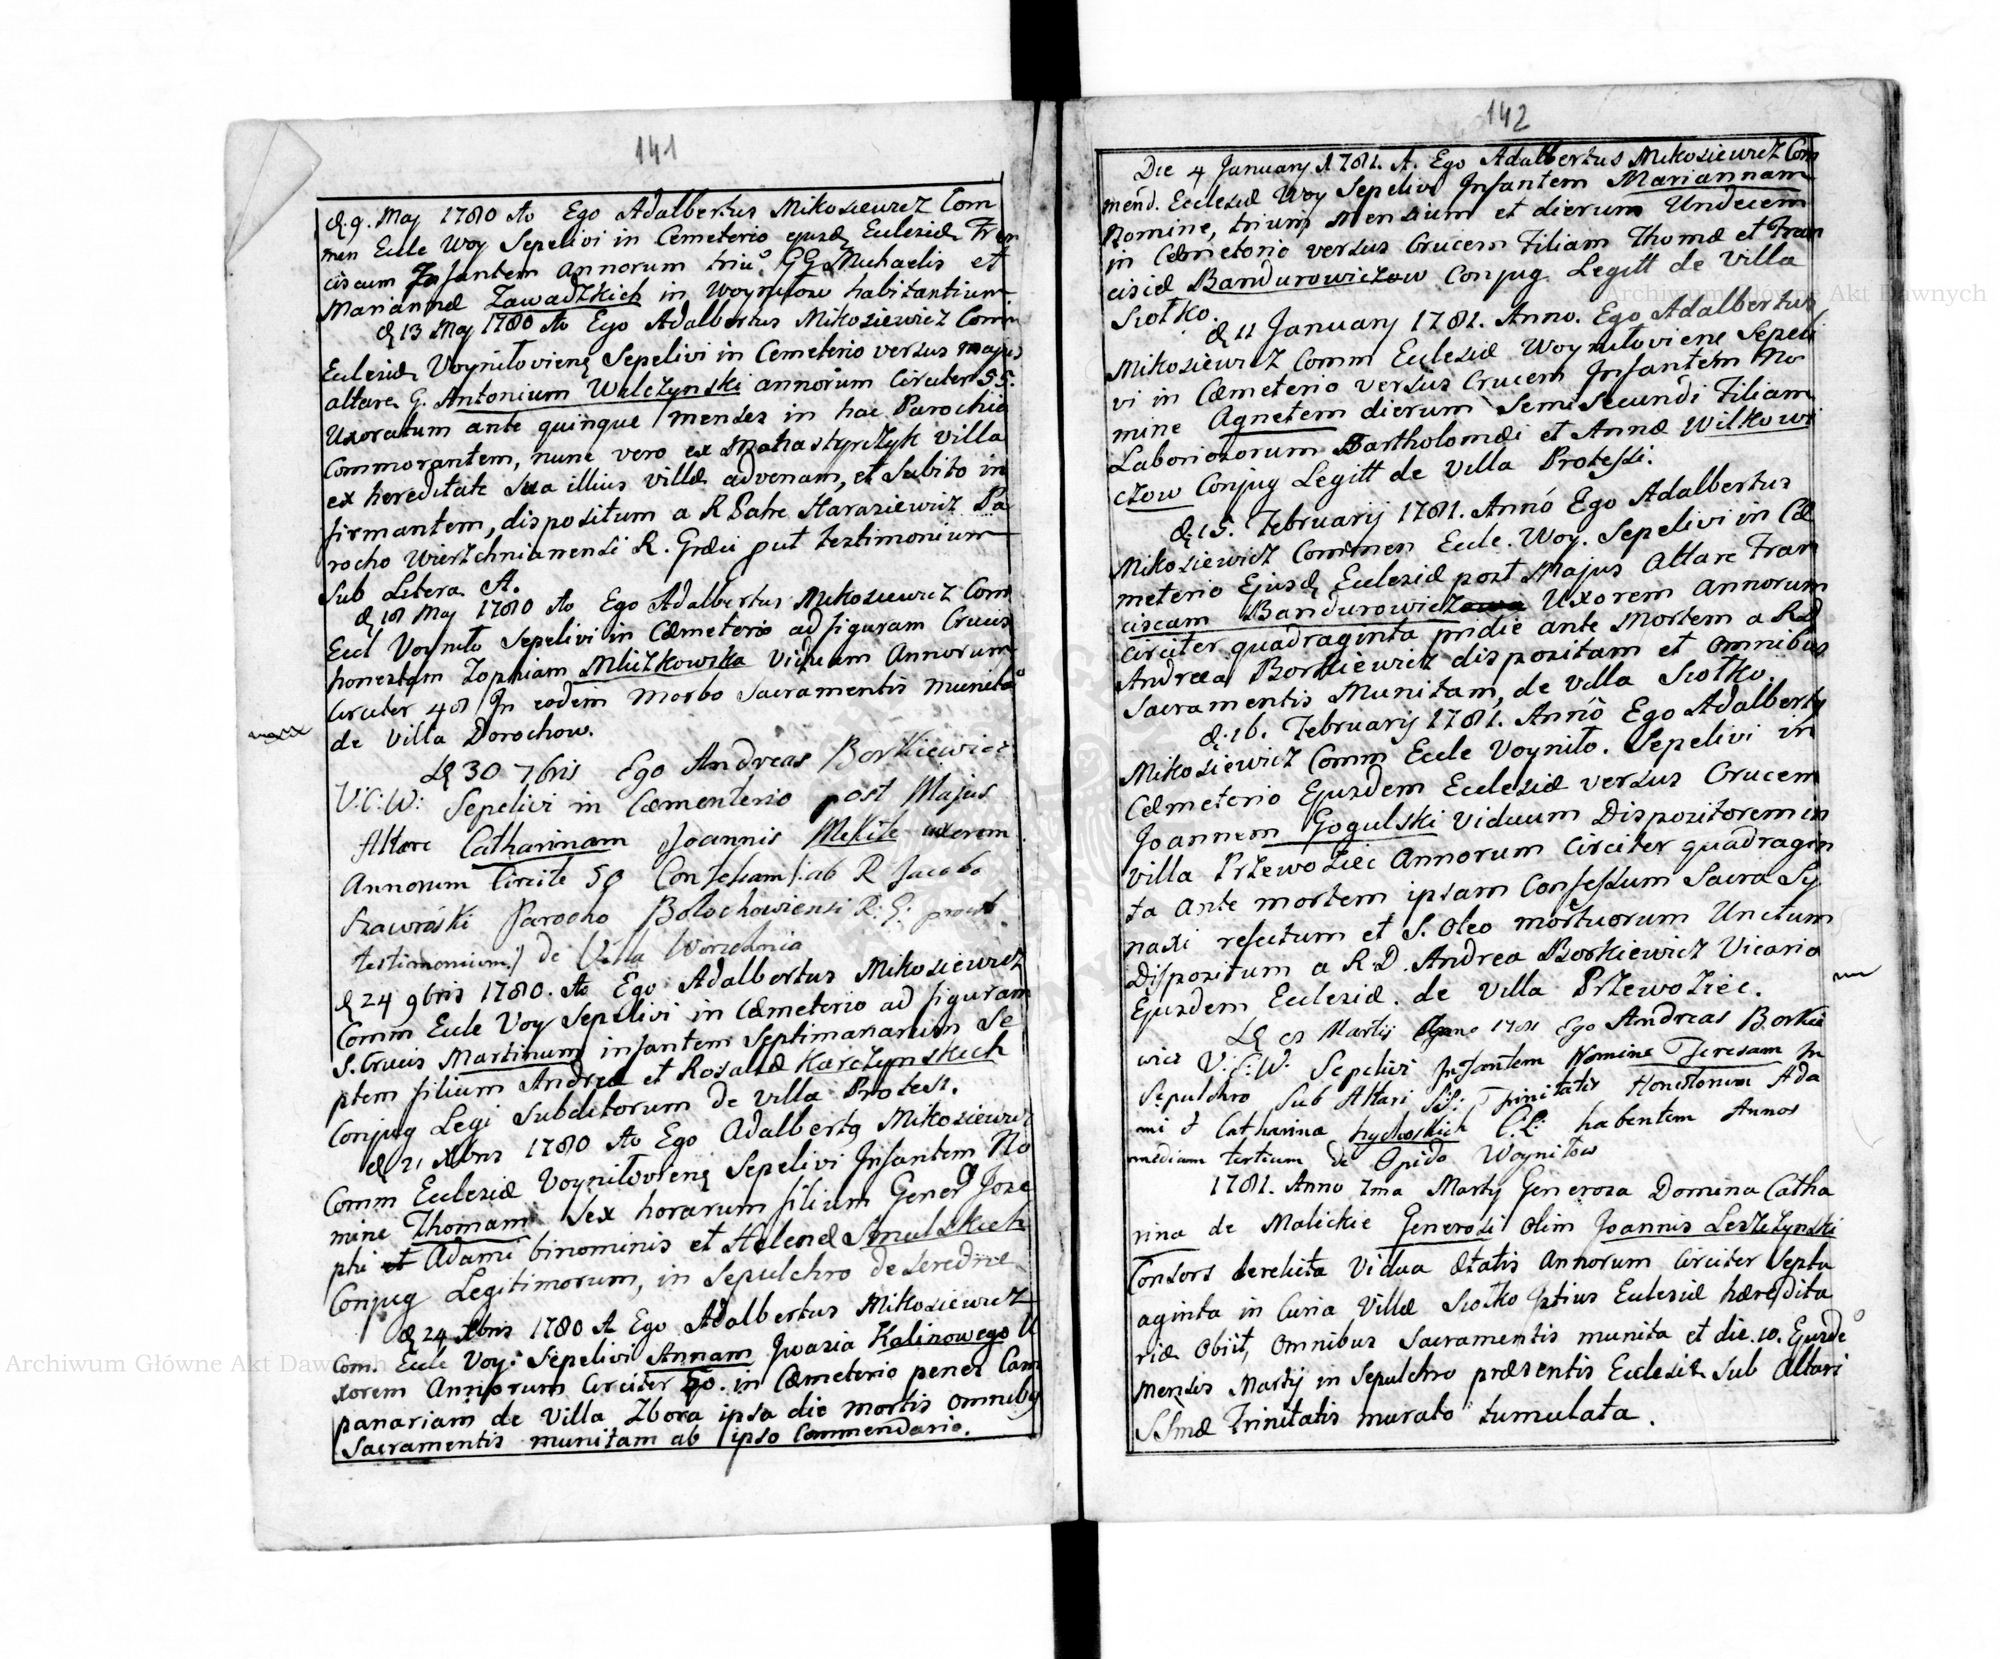 141
d. 9. May 1780 Ao Ego Adalbertus Mikosiewicz Com
men Eccle Woy Sepelivi in Cemeterio ejusd Eclesiæ Fran
ciscum Infantem Annorum triu. GG Michaelis et
Mariannæ Zawadzkich in Woyniłow habitantium
d 13 May 1780 Ao Ego Adalbertus Mikosiewicz Comm
Eclesiæ Voyniłovienę Sepelivi in Cemeterio versus majus
altare G. Antonium Wilczynski annorum Circiter 55.
Uxoratum ante quinque menses in hac Parochia
Commorantem, nunc vero ex Manastyrczyk villa
ex hereditate sua illius villæ advenam, et subito in
firmantem, dispositum a R Patre Harasiewicz Pa
rocho Wierzchnianensi R. Græci put testimonium
Sub Litera A.
d 18 May 1780 Ao Ego Adalbertus Mikosiewicz Com
Eccl Voyniło Sepelivi in Cæmeterio ad figuram Crucis
honestam Zophiam Mliczkowska Viduam Annorum
Circiter 48 In eodem morbo Sacramentis munita
de Villa Dorochow.
D 30 7bris Ego Andreas Borkiewicz
V: C: W: Sepelivi in Cæmenterio post Majus
Altare Catharinam Joannis Mekite uxorem
Annorum Circite 50 Confessam /: ab R Jacobo
Szawroski Parocho Bolochowiensi R: G: prout
testimonium :/ de Villa Wierzchnia
d 24 9bris 1780. Ao Ego Adalbertus Mikosiewicz
Comm Eccle Voy Sepelivi in Cæmeterio ad figuram
S. Crucis Martinum infantem Septimanarum Se
ptem filium Andreæ et Rosaliæ Karczynskich
Conjug Legi Subditorum de Villa Protesi.
d 21 Xbris 1780 Ao Ego Adalbertq Mikosiewicz
Comm Ecclesiæ Voyniłovienę Sepelivi Infantem No
mine Thomam Sex horarum filium Gener G Jose
phi et Adami binominis et Helenæ Smulskich
Conjug Legitimorum, in Sepulchro de Seredne
d 24 Xbris 1780 A Ego Adalbertus Mikosiewicz
Com. Eccle Voy: Sepelivi Annam Jwasia Kalinowego U
xorem Annorum Circiter 50. in Cæmeterio penes Cam
panariam de Villa Zbora ipsa die mortis omnibq
Sacramentis munitam ab ipso Commendario.
142
Die 4 January 1781. A. Ego Adalbertus Mikosiewicz Com
mend. Ecclesiæ Woy Sepelivi Infantem Mariannam
Nomine, trium Mensium et dierum Undecem
in Cæmetorio versus Crucem Filiam Thomæ et Fran
cisiæ Bandurowiczow Conjug Legitt de Villa
Siołko.
d 11 January 1781. Anno. Ego Adalbertus
Mikosiewicz Comm Eclesiæ Woyniłoviene Sepeli
vi in Cæmeterio versus Crucem Infantem No
mine Agnetem dierum Semisecundi Filiam
Laboriosorum Bartholomæi et Annæ Wilkowi
czow Conjug Legitt de Villa Protessi.
d 15. Februarij 1781. Anno Ego Adalbertus
Mikosiewicz Commen Eccle. Woy. Sepelivi in Cæ
meterio Ejusd Eclesiæ post Majus Altare Fran
ciscam Bandurowiczowa Uxorem Annorum
Circiter quadraginta pridie ante Mortem a R.D
Andrea Borkiewicz dispositam et omnibus
Sacramentis Munitam, de Villa Siołko.
d. 16. Februarij 1781. Anno Ego Adalbertq
Mikosiewicz Comm Eccle Voyniło. Sepelivi in
Cæmeterio Ejusdem Ecclesiæ versus Crucem
Joannem Gogulski Viduum Dispozitorem in
villa Przewoziec Annorum Circiter quadragin
ta Ante mortem ipsam Confessum Sacra Sy
naxi refectum et S. Oleo mortuorum Unctum
Dispositum a R.D. Andrea Borkiewicz Vicario
Ejusdem Eclesiæ. de Villa Przewoziec.
D 8 Martij Anno 1781 Ego Andreas Borkie
wicz V: C: W: Sepelivi Infantem Nomine Teresam In
Sepulchro Sub Altari SS: Trinitatis Honestorum Ada
mi et Catharina C: L: habentem Annos
medium tertium de Opido Woyniłow
1781. Anno 7ma Martij Generosa Domina Catha
rina de Malickie Generosi olim Joannis Leszczynski
Consors derelicta Vidua ætatis Annorum Circiter Septu
aginta in Curia Villæ Siołko Istius Eclesiæ hæredita
riæ Obiit, Omnibus Sacramentis munita et die. 10. Ejusde
Mensis Martij in Sepulchro præsentis Eclesiæ Sub Altari
SSmæ Trinitatis murato tumulata.
Archiwum Główne Akt Dawnych
Archiwum Główne Akt Dawnych